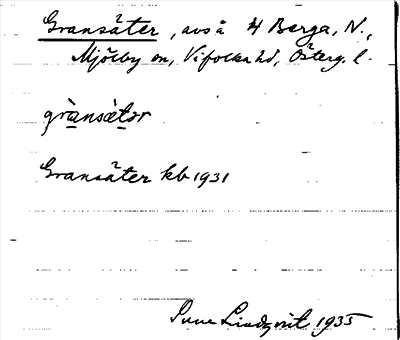 Gransäter, avs å 4 Berga, N.,
Mjölby sn, Vifolka hd, Österg. l.
grànsàtər
Gransäter kb 1931
Sune Lindqvist 1935